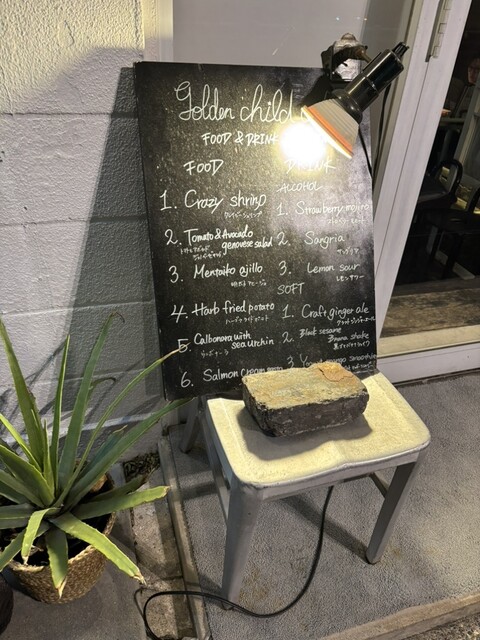 Golden child
FOOD & DRINK
FOOD
1. Crazy shrinp
クレイジーシュリンプ
2. Tomato & Avocado
genovese salad
3. Mentaiko ajillo
明太アヒージョ
4. Harb fried potato
ハーブフライドポテト
5. Calbonara with
sea urchin
6. Salmon Cream
DRINK
ALCOHOL
1. Strawberry mojito
2. Sangria
サングリア
3. Lemon sour
レモンサワー
SOFT
1. Craft ginger ale
クラフトジンジャーエール
2. Black sesame
Banana shake
黒ゴマバナナシェイク
3. mango Smoothie